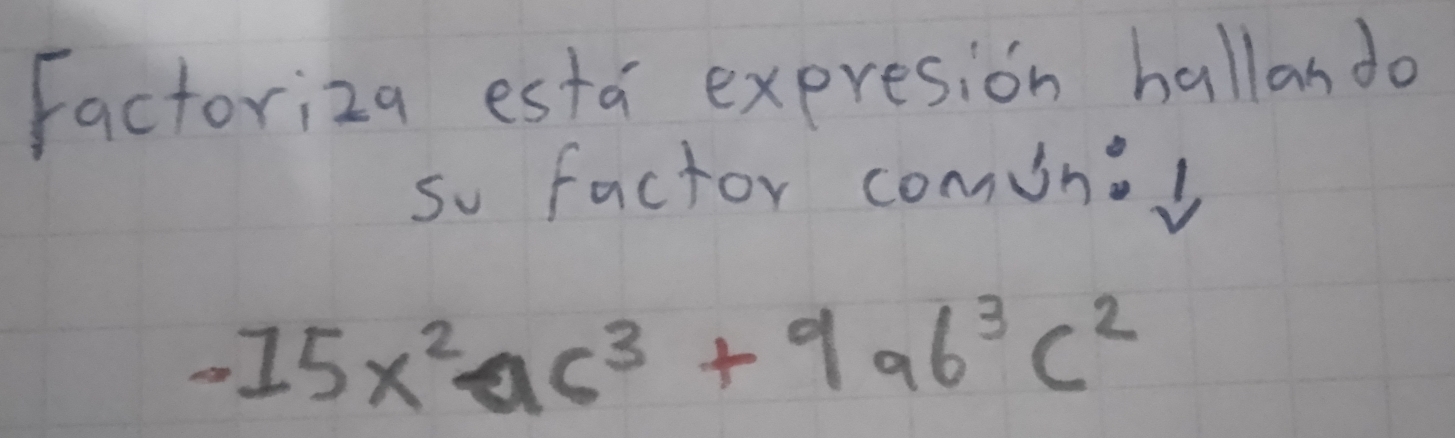 Factoriza está expresión hallando
su factor común: ↓
-15x²ac³ + 9ab³c²